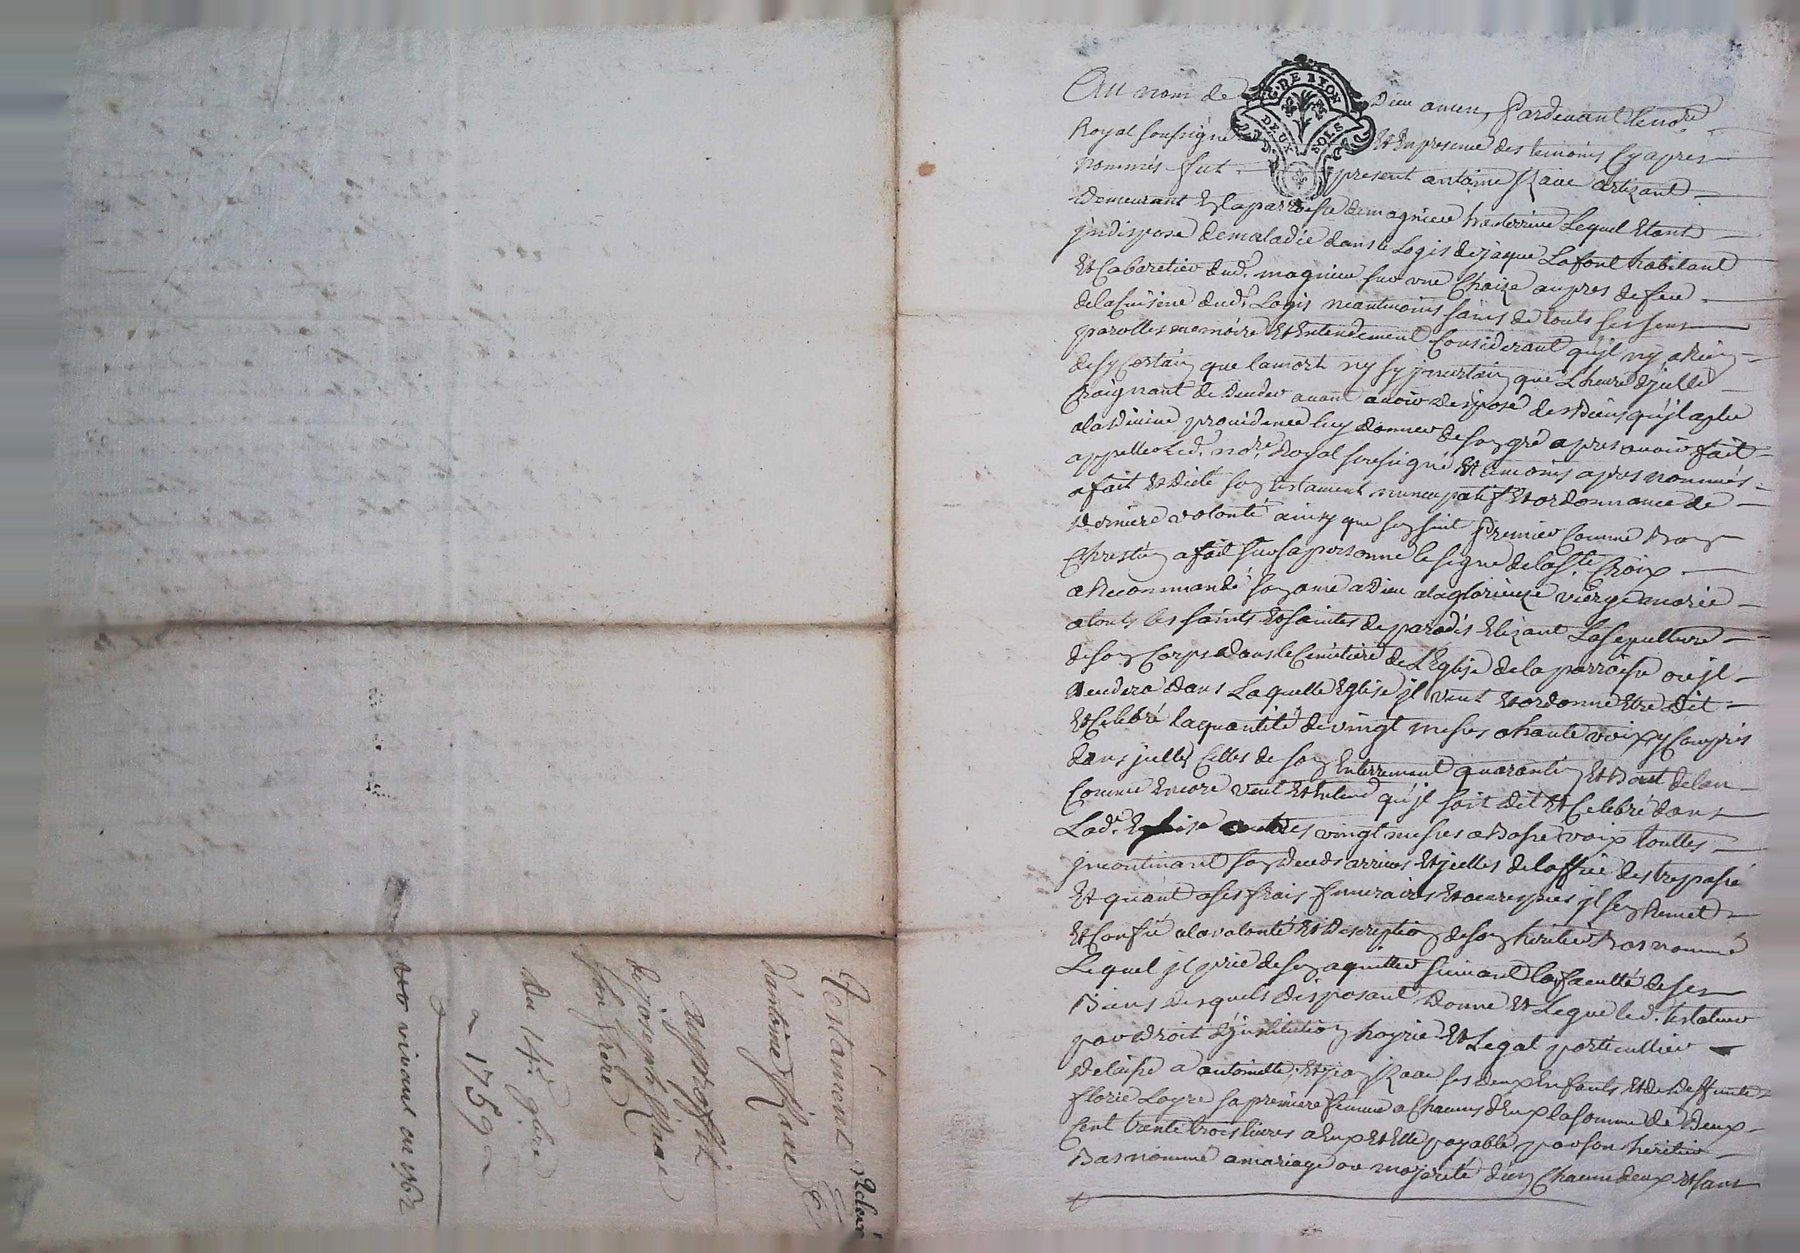 G. DE LYON
DEUX SOLS
Au nom de Dieu amen, Pardevant le no.re
Royal soussigné Et En presence des temoins Cy apres
nommés fut present antoine Rave artizant
demeurant En la parroisse de magnieu hauterive Lequel Etant
jndisposé de maladie dans le Logis de jaque Lafont habitant
Et Cabaretier dud.t magnieu sur vne Chaize aupres de feu
de la Cuisine dud.t Logis neantmoins sains de touts ses sens
parolles memoire Et Entendement Considerant qu'jl ny a Rien
de sy Certain que la mort ny sy jncertain que L'heure d'jcelle
Craignant de deceder avant avoir disposé des Biens qu'jl a plu
a la Divine providence luy donner de son gré apres avoir fait
appeller Led.t no.re Royal soussigné Et temoins apres nommés
a fait Et dicté son testament nuncupatif Et ordonnance de
derniere volonté ainsy que s'en suit Premier Comme Bon
Chrestien a fait sur sa personne le signe de la S.te Croix
a Recommandé son ame a Dieu a la glorieuze vierge marie
a touts les saints Et saintes de paradis Elizant La sepulture
de son Corps dans le Cimetiere de L'Eglise de la parroisse ou jl
decedera dans Laquelle Eglise jl veut Et ordonne Etre dit
Et Celebré la quantité de vingt messes a haute voix y Compris
dans jcelles Celles de son Enterrement quarantin Et Bout de lan
Comme Encore veut Et Entend qu'jl soit dit Et Celebré dans
Lad.e Eglise autres vingt messes a Basse voix touttes
jncontinant son deceds arrivé Et jcelles de loffice des trepassé
Et quant a ses frais funeraires Et oeuvres pies jl s'en Remet
Et Confie a la volonté Et discretion de son heritier Bas nommé
Lequel jl prie de s'en aquitter suivant la faculté de ses
Biens desquels disposant Donne Et Legue led.t testateur
par droit d'jnstitution hoyrie Et Legat particullier
delaissé a antoinette, Et Rave ses deux Enfants Et de deffunte
florie Loyre sa premiere femme a Chacuns d'Eux la somme de deux
Cent trente trois livres a Eux Et Elle payable par son heritier
Bas nommé a mariage ou majorité d'un Chacun deux Et sans
Testament
d'antoine Rave
au proffit
de joseph Rave
son frere
du 14.e 9bre
1759